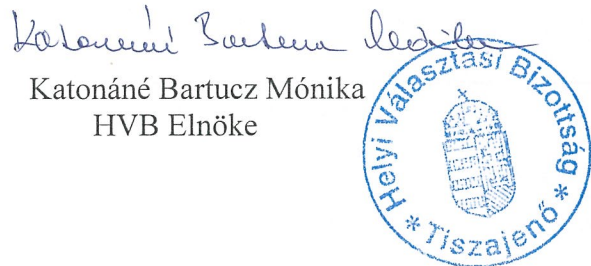 Katonáné Bartucz Mónika
Katonáné Bartucz Mónika
HVB Elnöke
Helyi Választási Bizottság
* Tiszajenő *